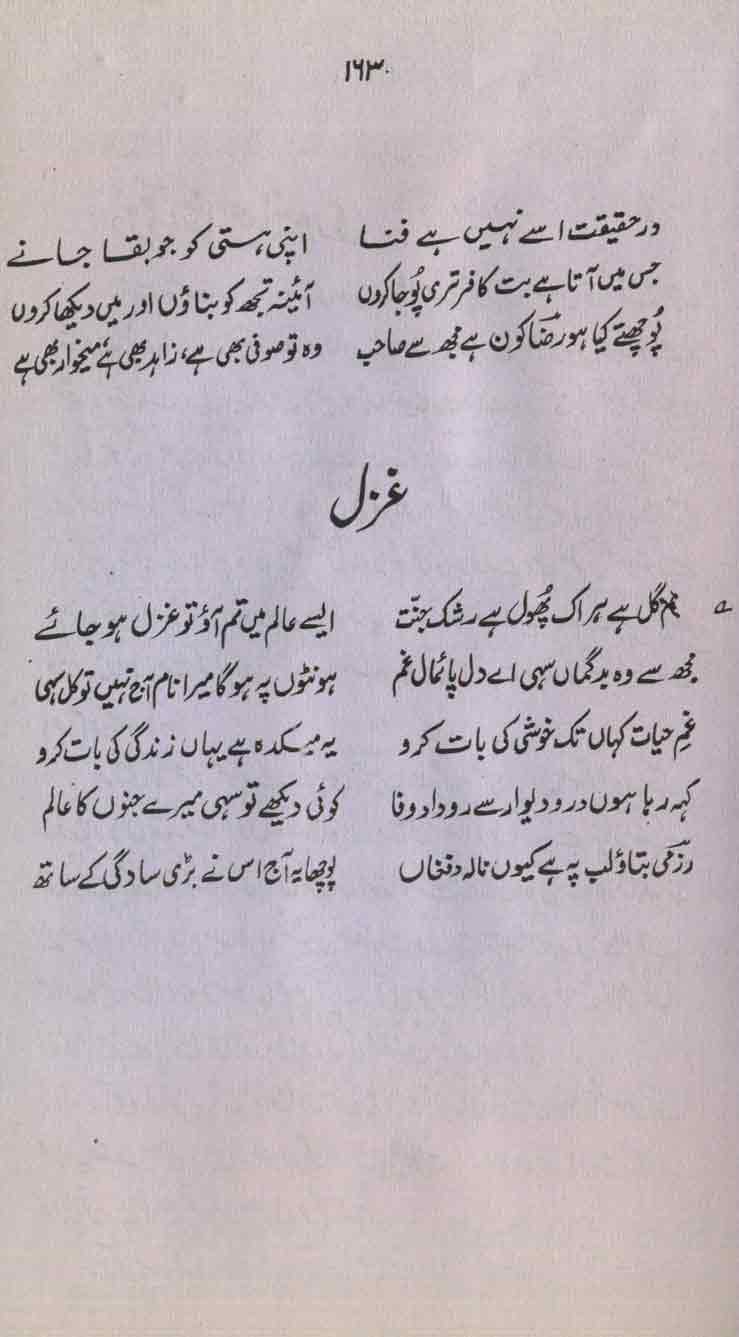 ۱۶۳
در حقیقت اسے نہیں ہے فنا اپنی ہستی کو جو بقا جانے
جس میں آتا ہے بت کافر تری پُوجا کروں آئینہ تجھ کو بناؤں اور میں دیکھا کروں
پُوچھتے کیا ہو رضاؔ کون ہے مجھ سے صاحب وہ تو صوفی بھی ہے، زاہد بھی ہے، میخوار بھی ہے
غزل
گل ہے ہر اک پھُول ہے رشک جنّت ایسے عالم میں تم آؤ تو غزل ہو جائے
مجھ سے وہ بدگماں سہی اے دل پائمال غم ہونٹوں پہ ہوگا میرا نام آج نہیں تو کل سہی
غمِ حیات کہاں تک خوشی کی بات کرو یہ میکدہ ہے یہاں زندگی کی بات کرو
کہہ رہا ہوں در و دیوار سے روداد وفا کوئی دیکھے تو سہی میرے جنوں کا عالم
رزمیؔ بتاؤ لب پہ ہے کیوں نالہ و فغاں پوچھا یہ آج اس نے بڑی سادگی کے ساتھ